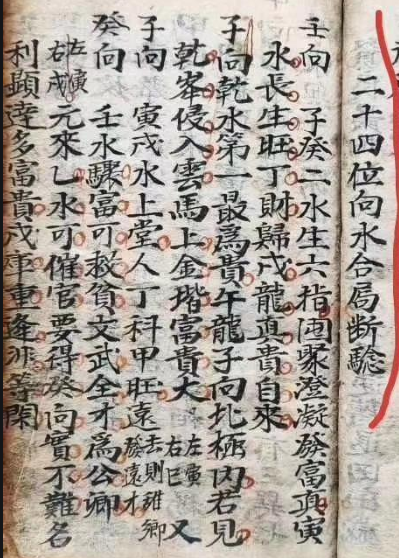 二十四位向水合局断驗
壬向 子癸二水生六指闊聚澄凝發富真寅
水長生旺丁財歸戌龍真貴自来
子向乾水第一最為貴午龍子向北極内若見
乾峯侵入雲馬上金堦富貴大 左寅右巳 又
子向 寅戌水上堂人丁科甲旺遠 去則離卿發遠才
癸向 壬水驟富可救貧文武全才為公卿
左寅右戌元來乙水可催官要得癸向實不難名
利顯達多富貴戌庫重逢非等閑